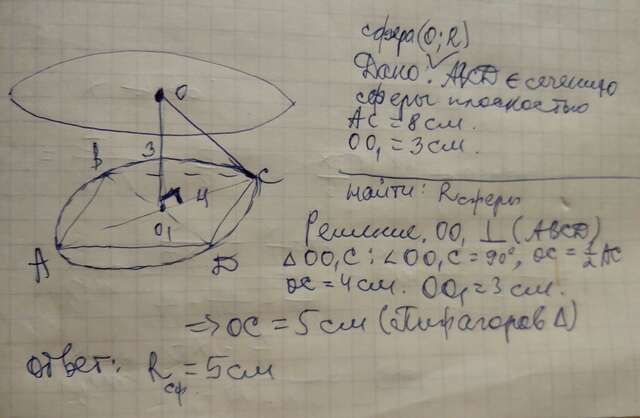 сфера(O; R)
Дано: ABCD ∈ сечению
сферы плоскостью
AC = 8 см.
OO₁ = 3 см.
найти: R сферы
Решение. OO₁ ⊥ (ABCD)
△ OO₁C : ∠OO₁C = 90°, OC = 1/2 AC
OC = 4 см. OO₁ = 3 см.
=> OC = 5 см (Пифагоров △)
ответ: R сф. = 5 см
O
3
B
4
C
O₁
A
D